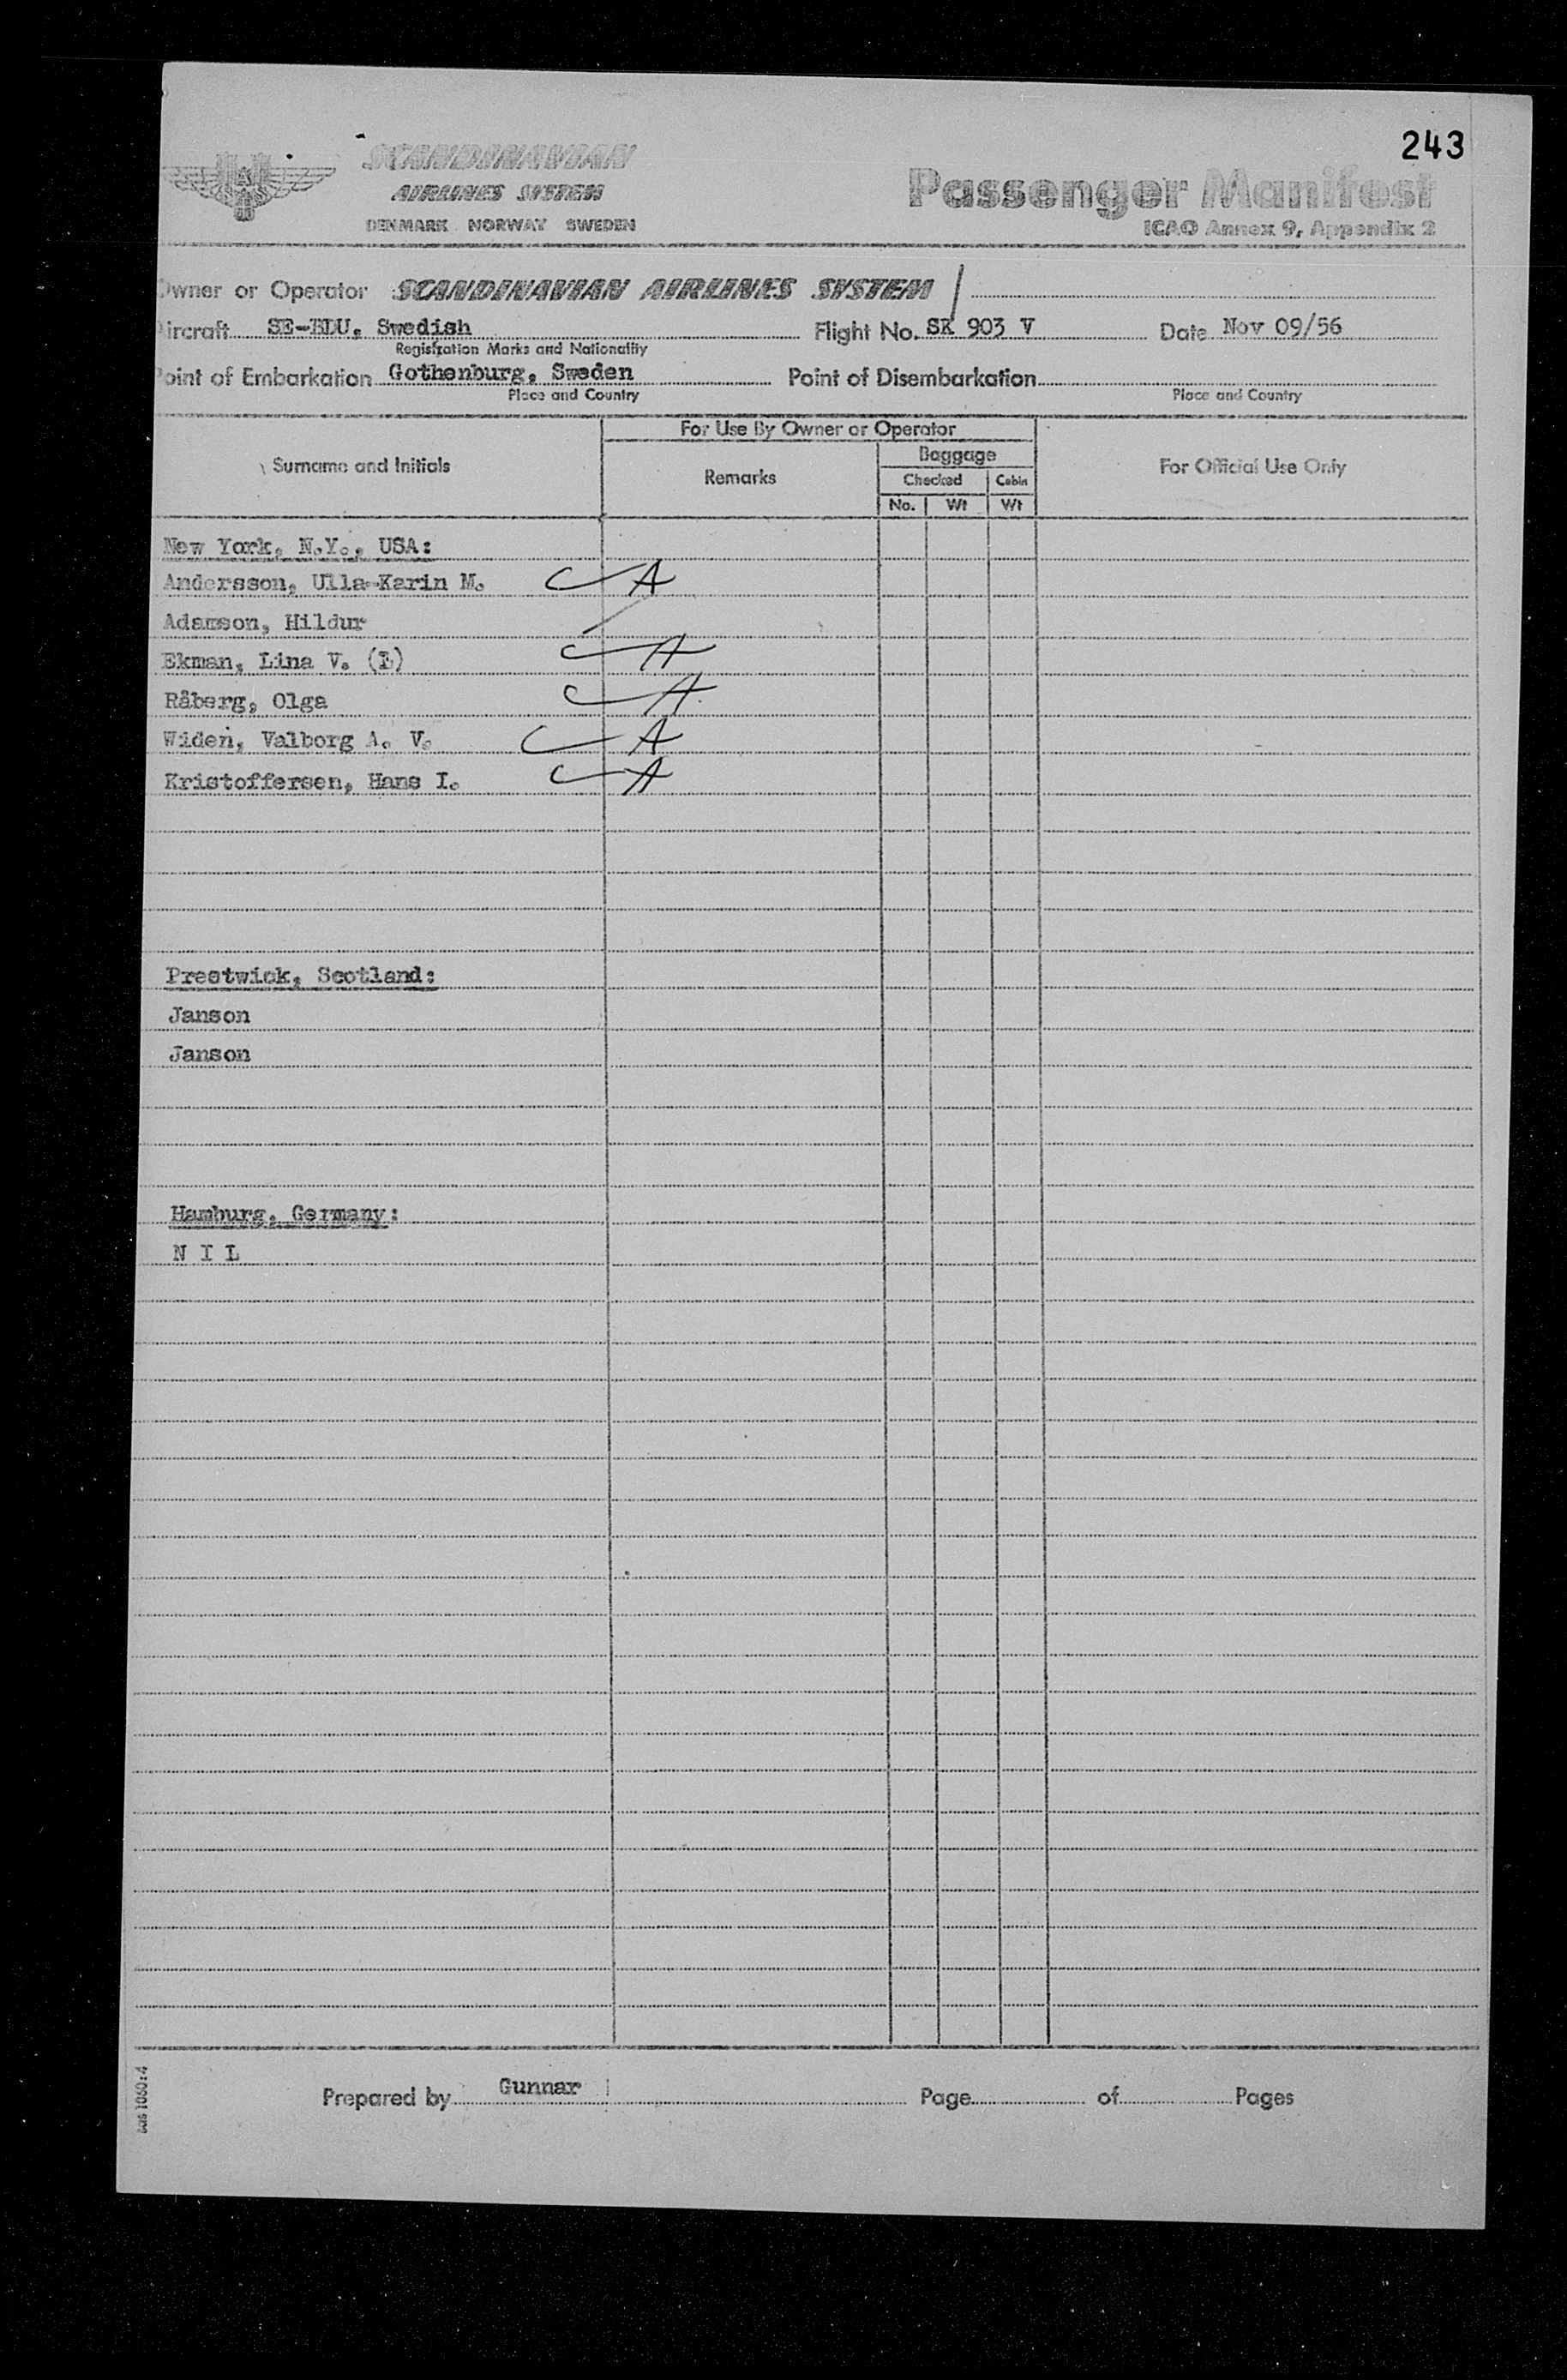 243
SCANDINAVIAN
AIRLINES SYSTEM
DENMARK NORWAY SWEDEN
Passenger Manifest
ICAO Annex 9, Appendix 2
Owner or Operator SCANDINAVIAN AIRLINES SYSTEM
Aircraft SE-BDU, Swedish Flight No. SK 903 V Date Nov 09/56
Registration Marks and Nationality
Point of Embarkation Gothenburg, Sweden Point of Disembarkation
Place and Country Place and Country
For Use By Owner or Operator
Surname and Initials Remarks Baggage For Official Use Only
Checked Cabin
No. Wt Wt
New York, N.Y., USA:
Andersson, Ulla-Karin M. A
Adamson, Hildur
Ekman, Lina V. (L) A
Råberg, Olga A
Widen, Valborg A. V. A
Kristoffersen, Hans I. A
Prestwick, Scotland:
Janson
Janson
Hamburg, Germany:
N I L
Prepared by Gunnar Page of Pages
sas 1060:4